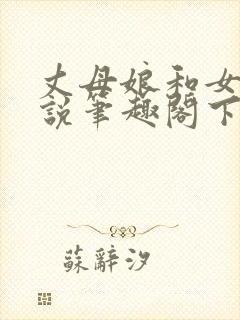 丈母娘和女
説筆趣閣下
蘇辭汐